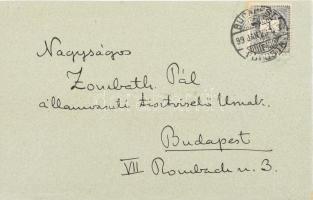 BUDAPEST
99 JAN
Nagyságos
Zombath Pál
államvasuti tisztviselő Urnak.
Budapest
VII Rombach u. 3.